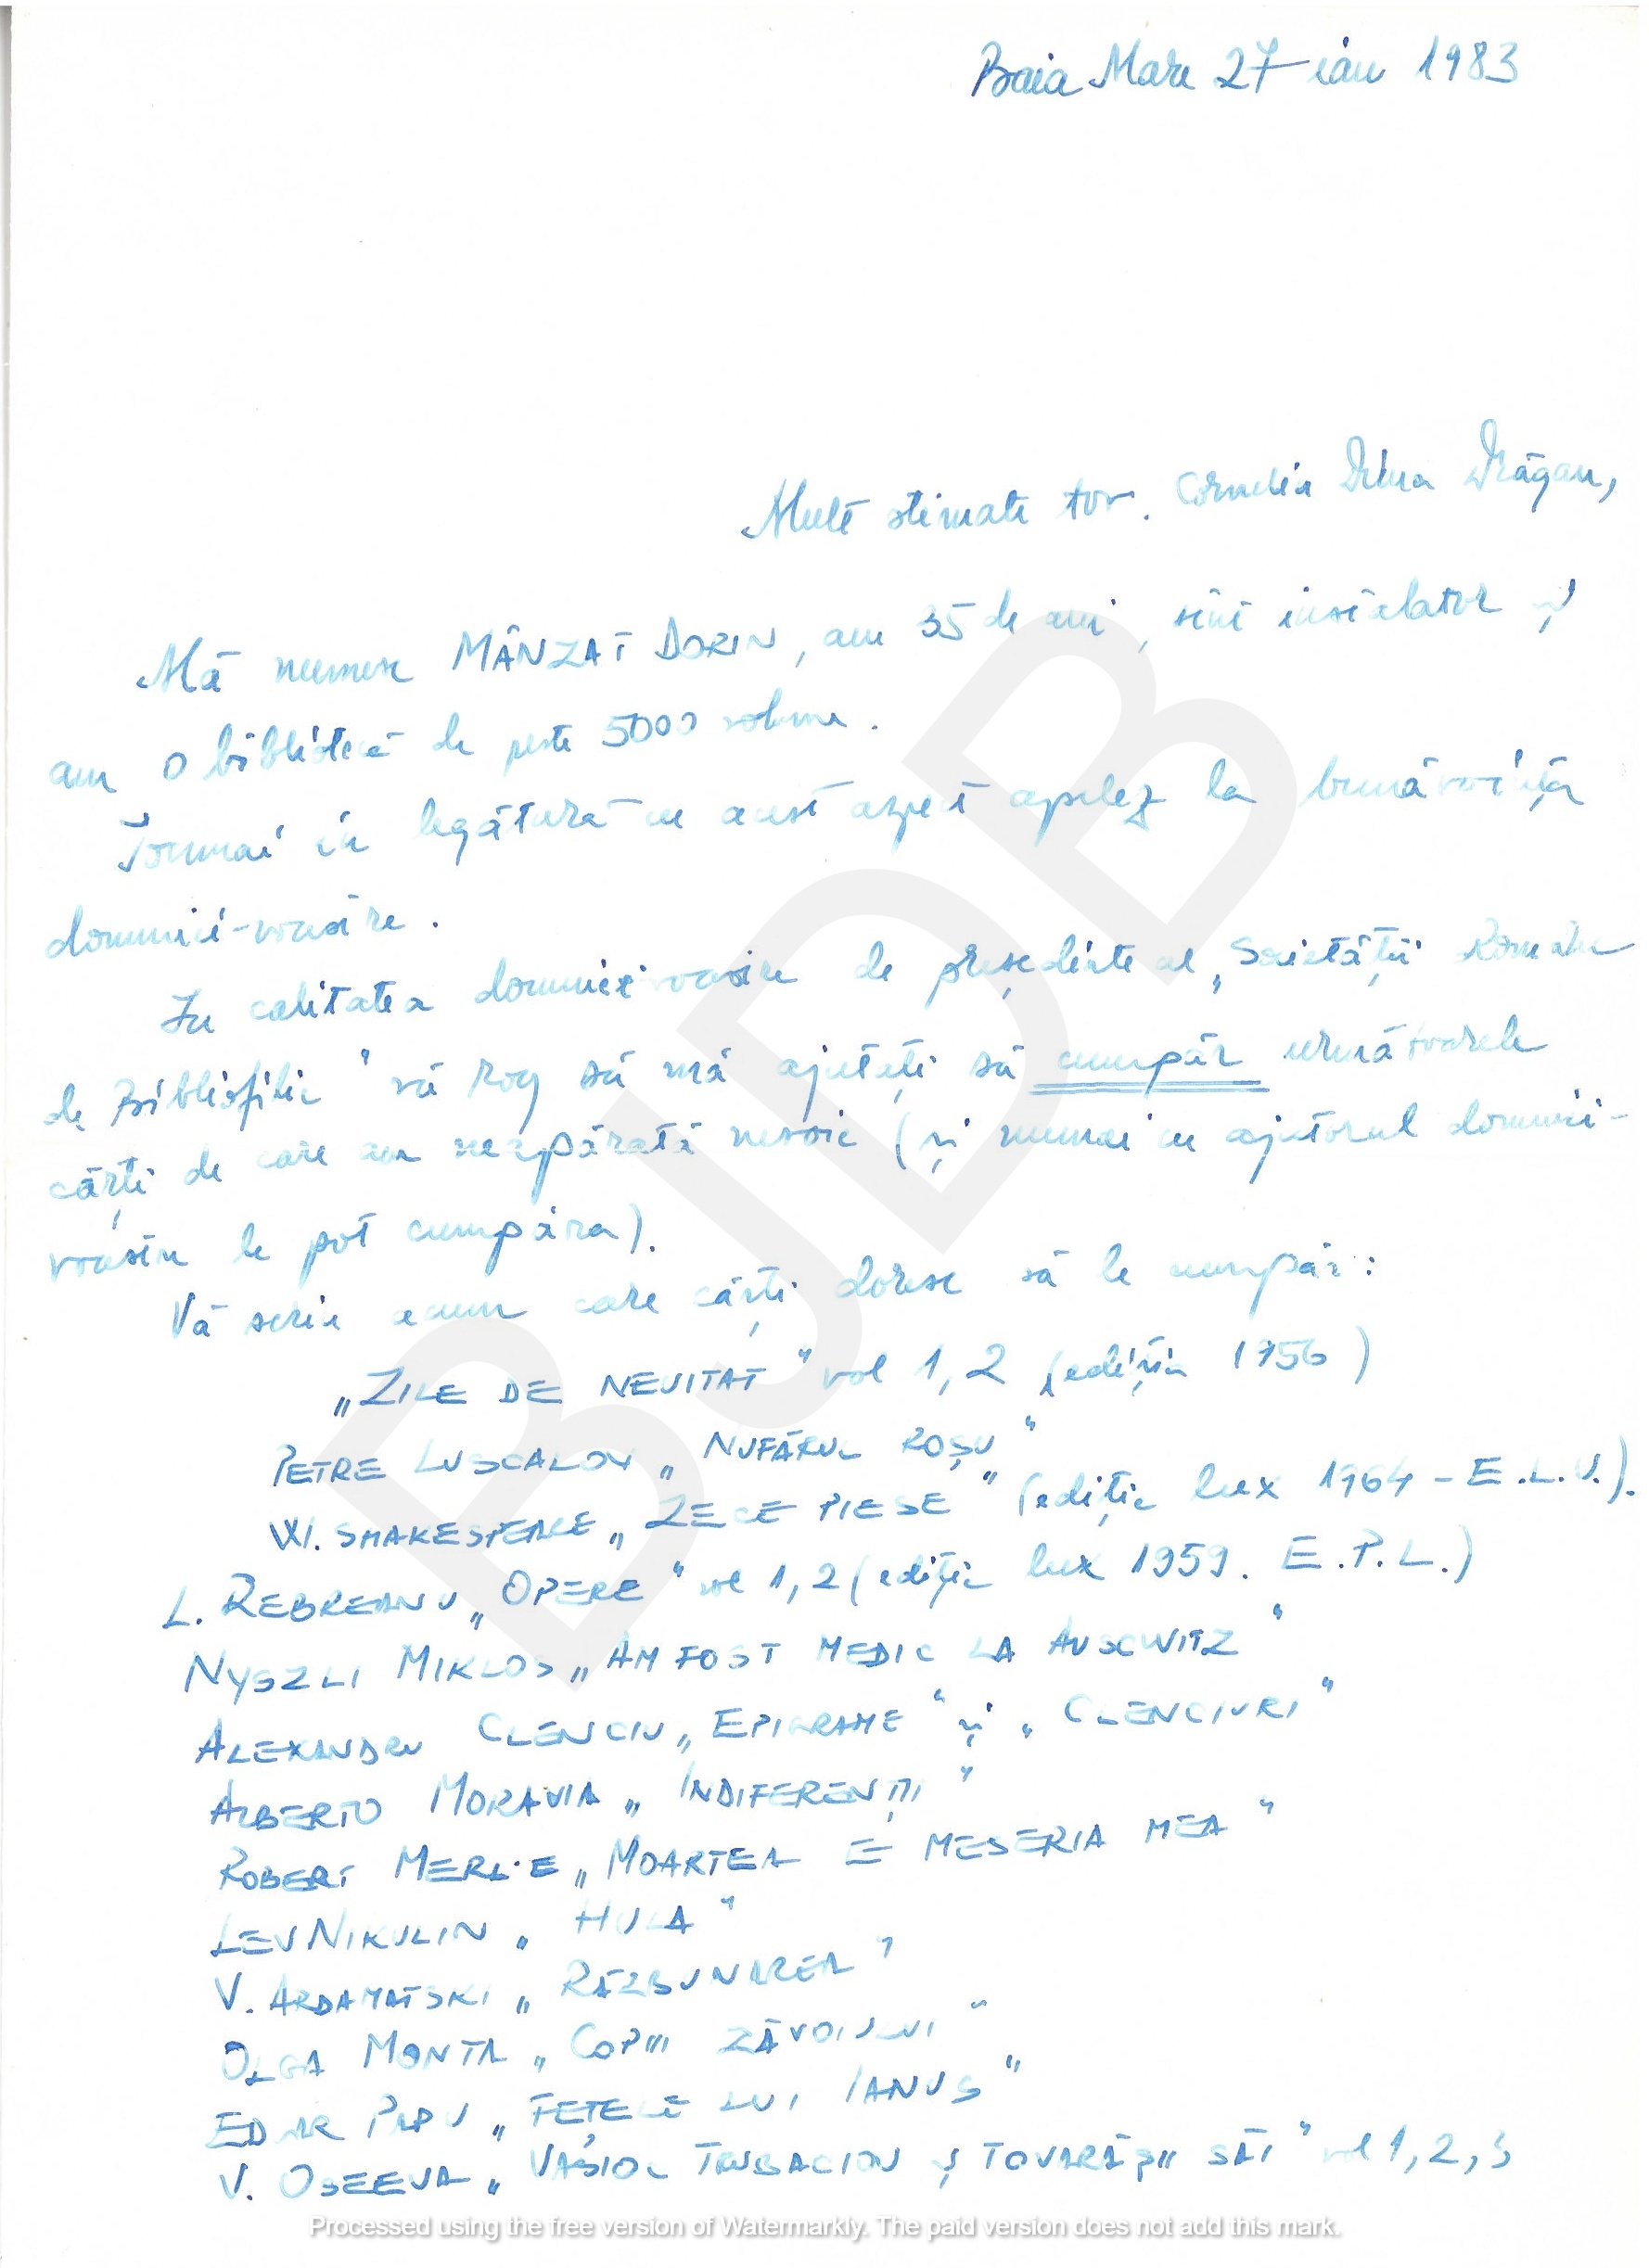 Baia Mare 27 ian 1983
Mult stimate tov. Corneliu Dima Drăgan,
Mă numesc MÂNZAT DORIN, am 35 de ani, sînt instalator și
am o bibliotecă de peste 5000 volume.
Tocmai în legătură cu acest aspect apelez la bunăvoința
domniei-voastre.
In calitatea domniei voastre de președinte al „Societății Române
de Bibliofilie" vă rog să mă ajutați să cumpăr următoarele
cărți de care am neapărată nevoie (și numai cu ajutorul domniei-
voastre le pot cumpăra).
Vă scriu acum care cărți doresc să le cumpăr:
„ZILE DE NEUITAT" vol 1, 2 (ediția 1956)
PETRE LUSCALOV „NUFĂRUL ROȘU"
W. SHAKESPEARE „ZECE PIESE" (ediție lux 1964 - E.L.U.).
L. REBREANU „OPERE" vol 1, 2 (ediție lux 1959. E.P.L.)
NYSZLI MIKLOS „AM FOST MEDIC LA AUSCWITZ"
ALEXANDRU CLENCIU „EPIGRAME" și „CLENCIURI"
ALBERTO MORAVIA „INDIFERENȚII"
ROBERT MERLE „MOARTEA E MESERIA MEA"
LEV NIKULIN „HULA"
V. ARDAMATSKI „RĂZBUNAREA"
OLGA MONTA „COPIII ZĂVOIULUI"
EDGAR PAPU „FETELE LUI IANUS"
V. OSEEVA „VASIOC TRUBACIOV ȘI TOVARĂȘII SĂI" vol 1, 2, 3
BJDB
Processed using the free version of Watermarkly. The paid version does not add this mark.